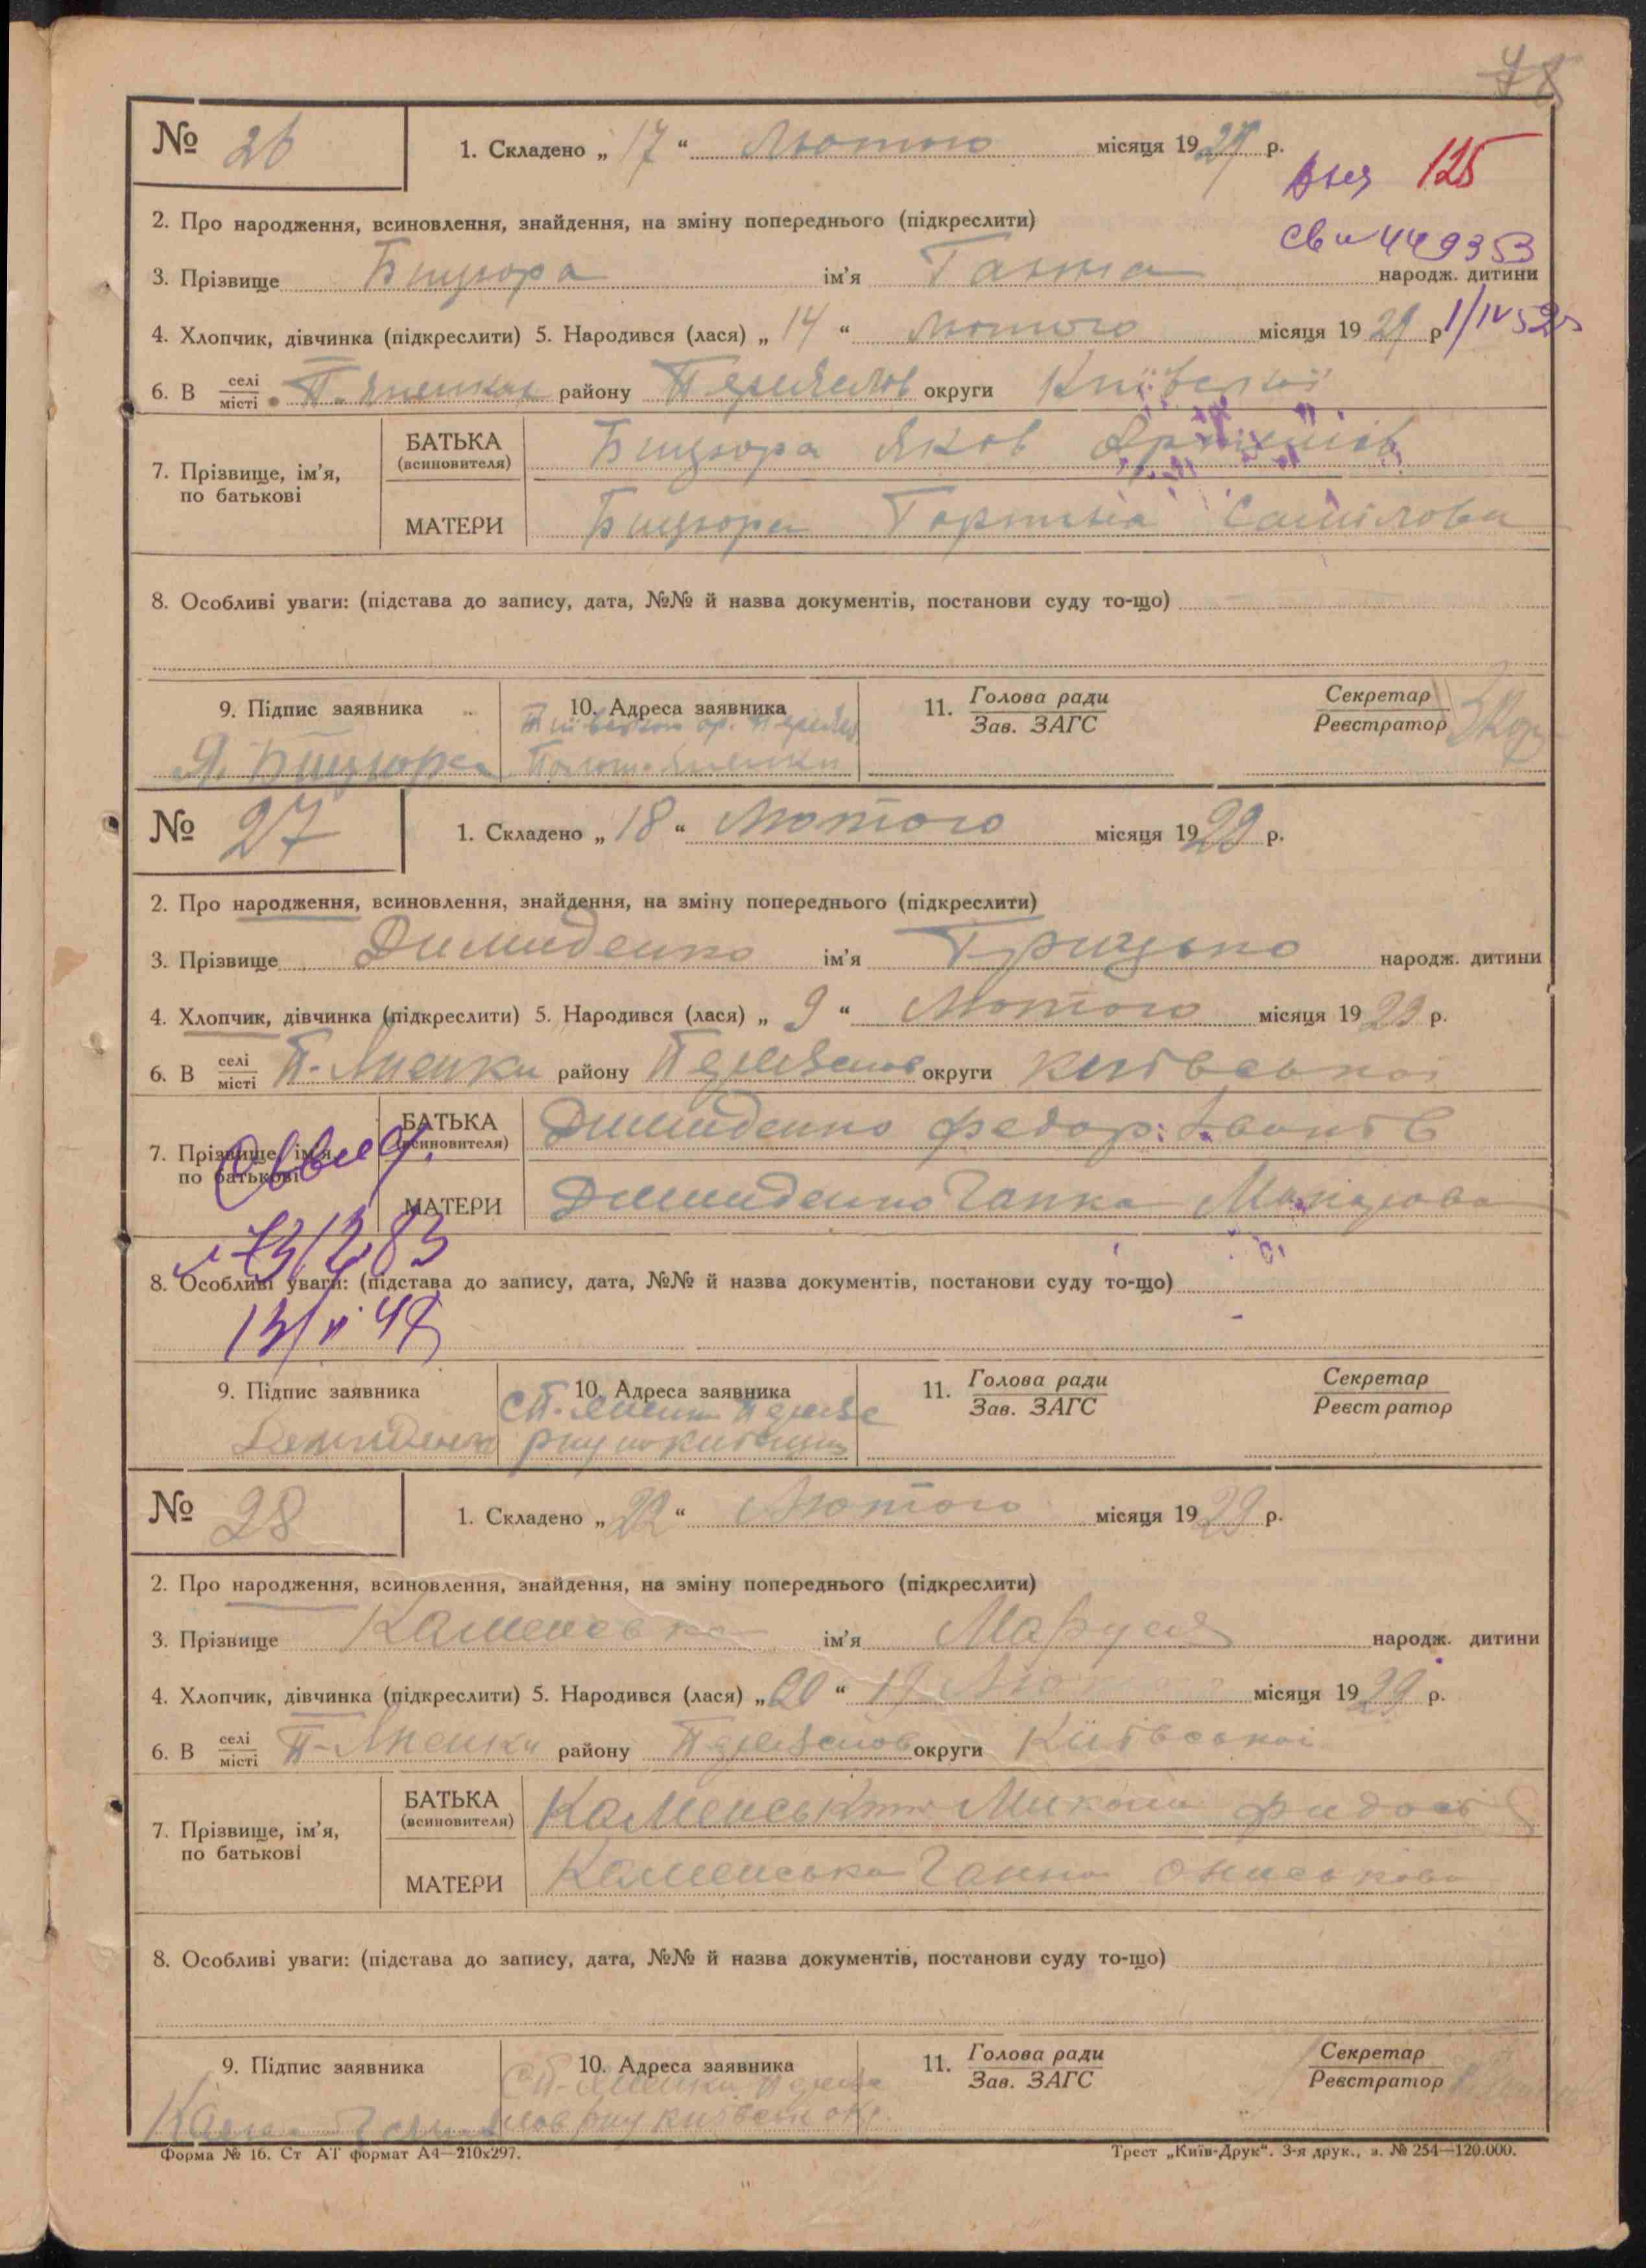 78
№ 26
1. Складено „ 17 “ Лютого місяця 1929 р.
125
2. Про народження, всиновлення, знайдення, на зміну попереднього (підкреслити)
449353
3. Прізвище Бицюра ім’я Ганна народж. дитини
4. Хлопчик, дівчинка (підкреслити) 5. Народився (лася) „ 14 “ лютого місяця 1929 р.
1/IV 52
6. В селі місті П. Яненки району округи Київської
7. Прізвище, ім’я, по батькові
БАТЬКА (всиновителя) Бицюра Яков
МАТЕРИ Бицюра Горпина Самілова
8. Особливі уваги: (підстава до запису, дата, №№ й назва документів, постанови суду то-що)
9. Підпис заявника
10. Адреса заявника
11. Голова ради Зав. ЗАГС
Секретар Реєстратор
Я. Бицюра
№ 27
1. Складено „ 18 “ Лютого місяця 1929 р.
2. Про народження, всиновлення, знайдення, на зміну попереднього (підкреслити)
3. Прізвище Димиденко ім’я Грицько народж. дитини
4. Хлопчик, дівчинка (підкреслити) 5. Народився (лася) „ 9 “ Лютого місяця 1929 р.
6. В селі місті П-Яненки району округи Київської
7. Прізвище, ім’я, по батькові
БАТЬКА (всиновителя) Димиденко Федор Іванів
МАТЕРИ Димиденко Гапка
8. Особливі уваги: (підстава до запису, дата, №№ й назва документів, постанови суду то-що)
9. Підпис заявника
10. Адреса заявника
11. Голова ради Зав. ЗАГС
Секретар Реєстратор
№ 28
1. Складено „ 22 “ Лютого місяця 1929 р.
2. Про народження, всиновлення, знайдення, на зміну попереднього (підкреслити)
3. Прізвище Каменська ім’я Маруся народж. дитини
4. Хлопчик, дівчинка (підкреслити) 5. Народився (лася) „ 20 “ місяця 1929 р.
6. В селі місті П-Яненки району округи Київської
7. Прізвище, ім’я, по батькові
БАТЬКА (всиновителя) Микола
МАТЕРИ Каменська Ганна
8. Особливі уваги: (підстава до запису, дата, №№ й назва документів, постанови суду то-що)
9. Підпис заявника
10. Адреса заявника
11. Голова ради Зав. ЗАГС
Секретар Реєстратор
Форма № 16. Ст АТ формат А4—210х297.
Трест „Київ-Друк“. 3-я друк., з. № 254—120.000.